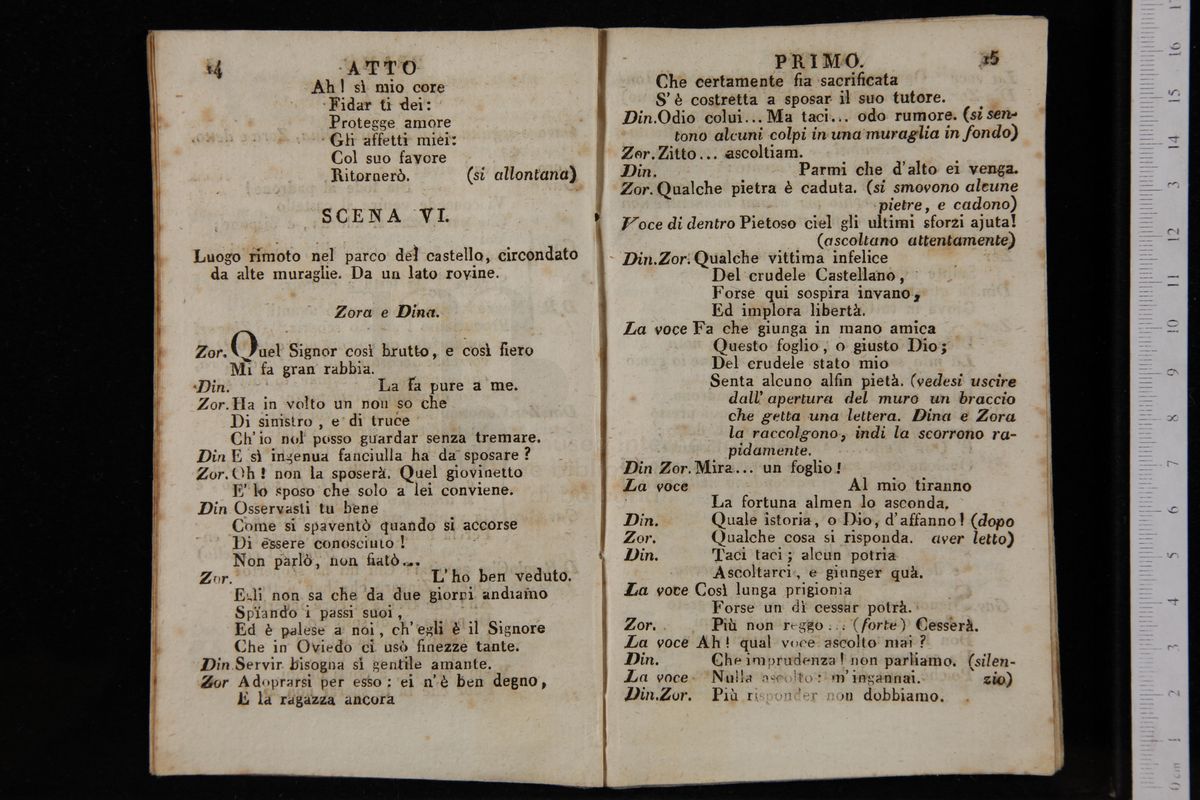 14 ATTO
Ah! sì mio core
Fidar ti dei:
Protegge amore
Gli affetti miei:
Col suo favore
Ritornerò. (si allontana)
SCENA VI.
Luogo rimoto nel parco del castello, circondato
da alte muraglie. Da un lato rovine.
Zora e Dina.
Zor. Quel Signor così brutto, e così fiero
Mi fa gran rabbia.
Din. La fa pure a me.
Zor. Ha in volto un non so che
Di sinistro, e di truce
Ch'io nol posso guardar senza tremare.
Din E sì ingenua fanciulla ha da sposare?
Zor. Oh! non la sposerà. Quel giovinetto
E' lo sposo che solo a lei conviene.
Din Osservasti tu bene
Come si spaventò quando si accorse
Di essere conosciuto!
Non parlò, non fiatò...
Zor. L'ho ben veduto.
Egli non sa che da due giorni andiamo
Spïando i passi suoi,
Ed è palese a noi, ch'egli è il Signore
Che in Oviedo ci usò finezze tante.
Din Servir bisogna sì gentile amante.
Zor Adoprarsi per esso: ei n'è ben degno,
E la ragazza ancora
PRIMO. 15
Che certamente fia sacrificata
S'è costretta a sposar il suo tutore.
Din. Odio colui... Ma taci... odo rumore. (si sen-
tono alcuni colpi in una muraglia in fondo)
Zor. Zitto... ascoltiam.
Din. Parmi che d'alto ei venga.
Zor. Qualche pietra è caduta. (si smovono alcune
pietre, e cadono)
Voce di dentro Pietoso ciel gli ultimi sforzi ajuta!
(ascoltano attentamente)
Din. Zor. Qualche vittima infelice
Del crudele Castellano,
Forse qui sospira invano,
Ed implora libertà.
La voce Fa che giunga in mano amica
Questo foglio, o giusto Dio;
Del crudele stato mio
Senta alcuno alfin pietà. (vedesi uscire
dall'apertura del muro un braccio
che getta una lettera. Dina e Zora
la raccolgono, indi la scorrono ra-
pidamente.
Din Zor. Mira... un foglio!
La voce Al mio tiranno
La fortuna almen lo asconda.
Din. Quale istoria, o Dio, d'affanno! (dopo
Zor. Qualche cosa si risponda. aver letto)
Din. Taci taci; alcun potria
Ascoltarci, e giunger quà.
La voce Così lunga prigionia
Forse un dì cessar potrà.
Zor. Più non reggo... (forte) Cesserà.
La voce Ah! qual voce ascolto mai?
Din. Che imprudenza! non parliamo. (silen-
La voce Nulla ascolto: m'ingannai. zio)
Din. Zor. Più risponder non dobbiamo.